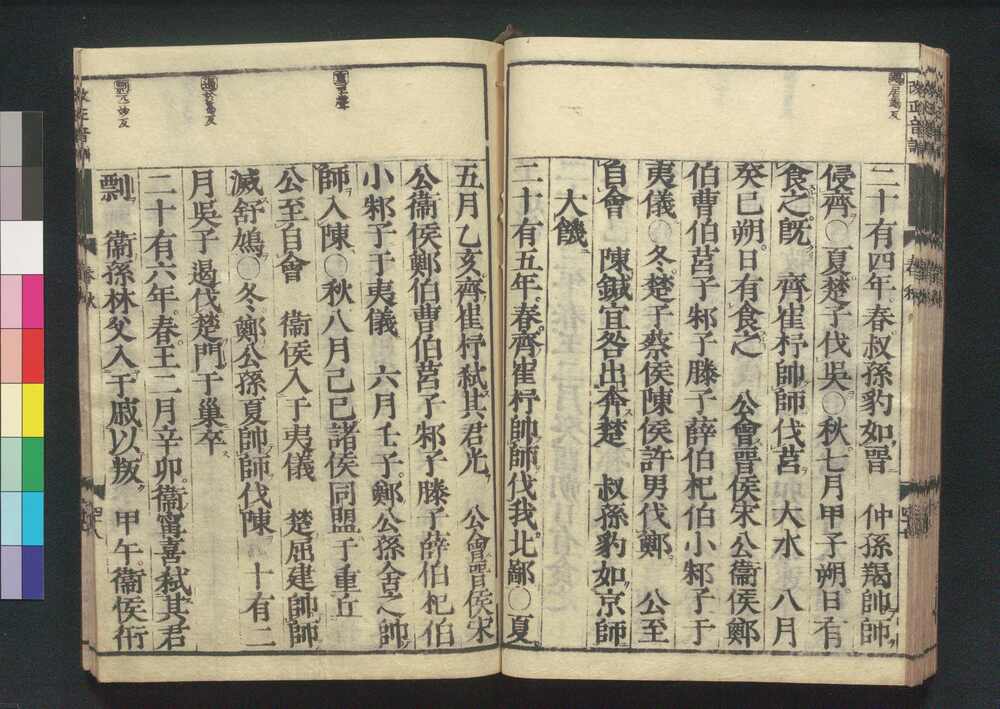 二十有四年春叔孫豹如晉　仲孫羯帥師
侵齊〇夏楚子伐吳〇秋七月甲子朔日有
食之既　齊崔杼帥師伐莒　大水　八月
癸巳朔日有食之　公會晉侯宋公衞侯鄭
伯曹伯莒子邾子滕子薛伯杞伯小邾子于
夷儀〇冬楚子蔡侯陳侯許男伐鄭　公至
自會　陳鍼宜咎出奔楚　叔孫豹如京師
大饑
二十有五年春齊崔杼帥師伐我北鄙〇夏
五月乙亥齊崔杼弑其君光　公會晉侯宋
公衞侯鄭伯曹伯莒子邾子滕子薛伯杞伯
小邾子于夷儀　六月壬子鄭公孫舍之帥
師入陳〇秋八月己巳諸侯同盟于重丘
公至自會　衞侯入于夷儀　楚屈建帥師
滅舒鳩〇冬鄭公孫夏帥師伐陳　十有二
月吳子遏伐楚門于巢卒
二十有六年春王二月辛卯衞甯喜弑其君
剽　衞孫林父入于戚以叛　甲午衞侯衎